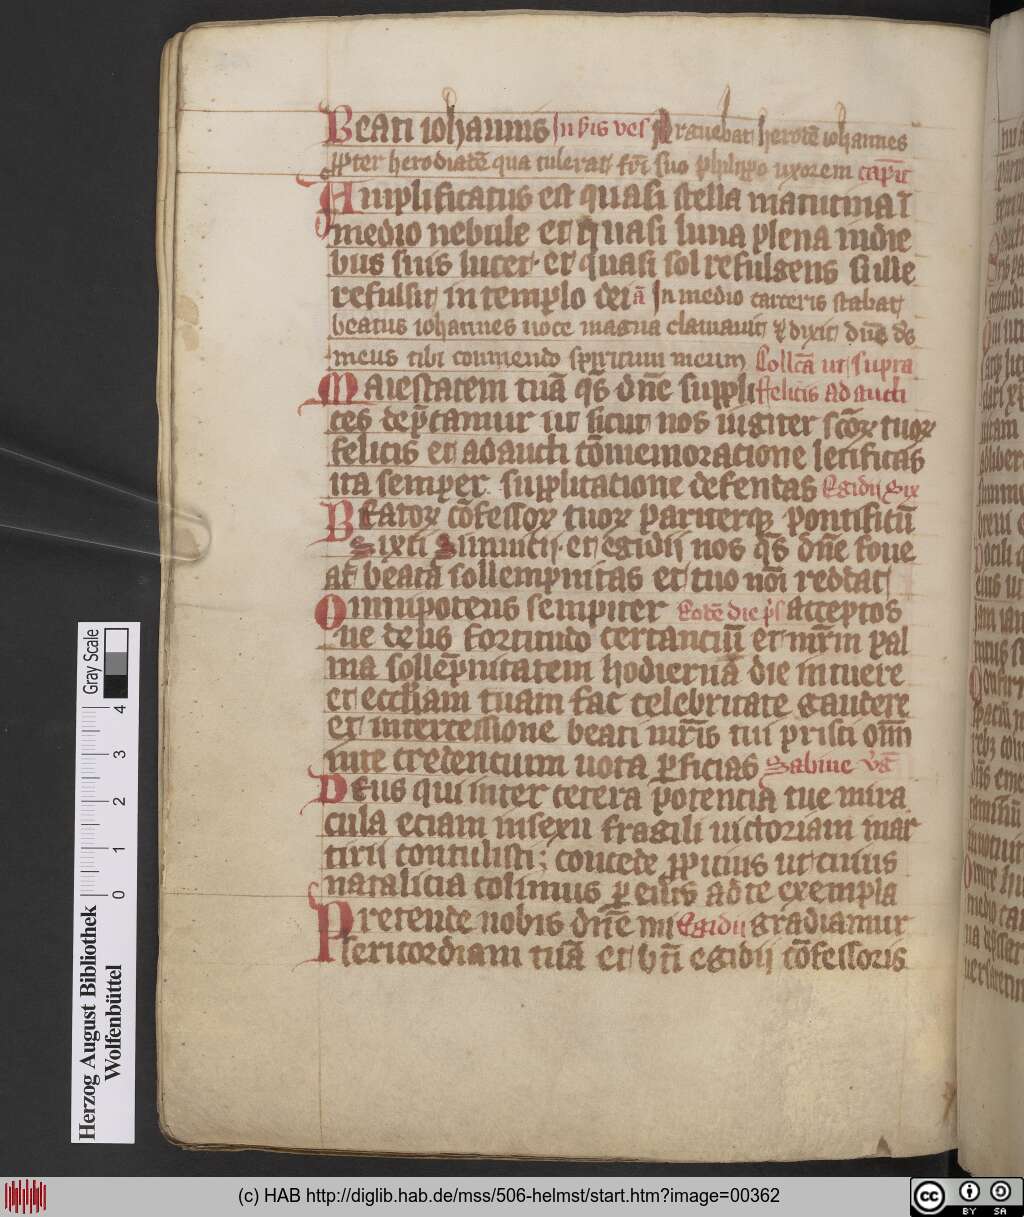 Beati iohannis In p̄is ves Prauebat herodē iohannes
ꝓpter herodiadē qua tulerat frī suo philippo uxorem capit̄
Amplificatus est quasi stella matutina ī
medio nebule et quasi luna plena in die
bus suis lucet · et quasi sol refulgens sic ille
refulsit in templo dei ā In medio carceris stabat
beatus iohannes uoce magna clamauit & dixit dn̄e ds̄
meus tibi commendo spiritum meum Collcā ut supra
Maiestatem tuā qs̄ dn̄e suppli felicis ad aucti
ces dep̄camur ut sicut nos iugiter scōꝝ tuoꝝ
felicis et adaucti cōmemoratione letificas
ita semper supplicatione defendas Egidij Six
Beatoꝝ cōfessoꝝ tuoꝝ pariterqꝫ pontificū
Sixti Sinnicij et egidij nos qs̄ dn̄e foue
at beata sollempnitas et tuo nōi reddat
Omnipotens sempiter Eodē die p̄s acceptos
ne deus fortitudo certanciū et mr̄m pal
ma sollēpnitatem hodiernā die intuere
et eccliam tuam fac celebritate gaudere
et intercessione beati mr̄is tui prisci om̄
nite credencium uota ꝑficias Sabine v̄g
Deus qui inter cetera potencia tue mira
cula eciam in sexu fragili uictoriam mar
tirii contulisti ; concede ꝓpicius ut cuius
natalicia colimus ꝑ eius ad te exempla
Pretende nobis dn̄e mi Egidij gradiamur
sericordiam tuā et bn̄ti egidij cōfessoris
Gray Scale
0 1 2 3 4
Herzog August Bibliothek
Wolfenbüttel
(c) HAB http://diglib.hab.de/mss/506-helmst/start.htm?image=00362
cc BY SA